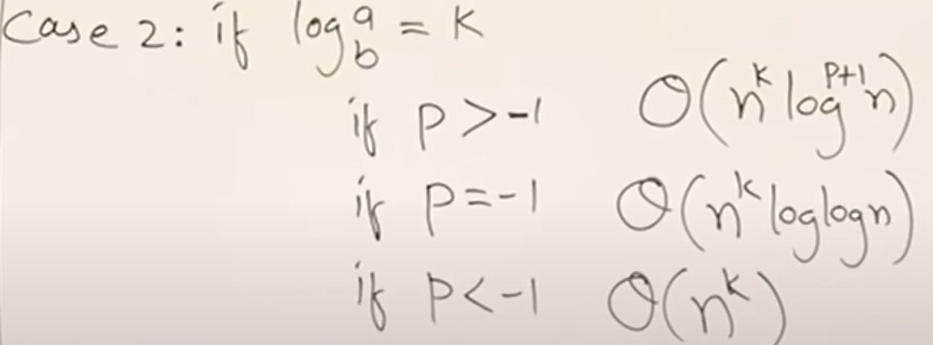 Case 2: if log_b^a = k
if P > -1 Θ(n^k log^{P+1} n)
if P = -1 Θ(n^k log log n)
if P < -1 Θ(n^k)